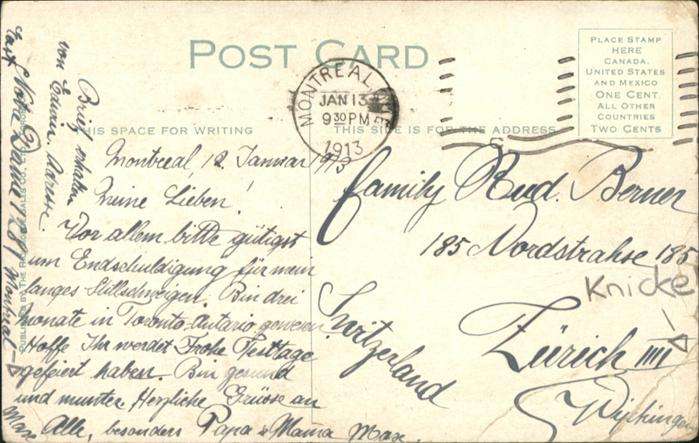 POST CARD
PLACE STAMP
HERE
CANADA,
UNITED STATES
AND MEXICO
ONE CENT.
ALL OTHER
COUNTRIES
TWO CENTS
MONTREAL
JAN 13
9 30 PM
1913
THIS SPACE FOR WRITING
THIS SIDE IS FOR THE ADDRESS
Montreal, 12. Januar 1913
Meine Lieben!
Vor allem bitte gütigst
um Endschuldigung für mein
langes Stillschweigen. Bin drei
Monate in Toronto Ontario gewesen.
Hoffe Ihr werdet Frohe Festtage
gefeiert haben. Bin gesund
und munter. Herzliche Grüsse an
Alle, besonders Papa & Mama Max.
Brief erhalten
von Edwin. Adresse
East Notre Dame 1781 Montreal
Max
Family Rud. Berner
185 Nordstrahse 185
Zürich IIII
Switzerland
Knicke